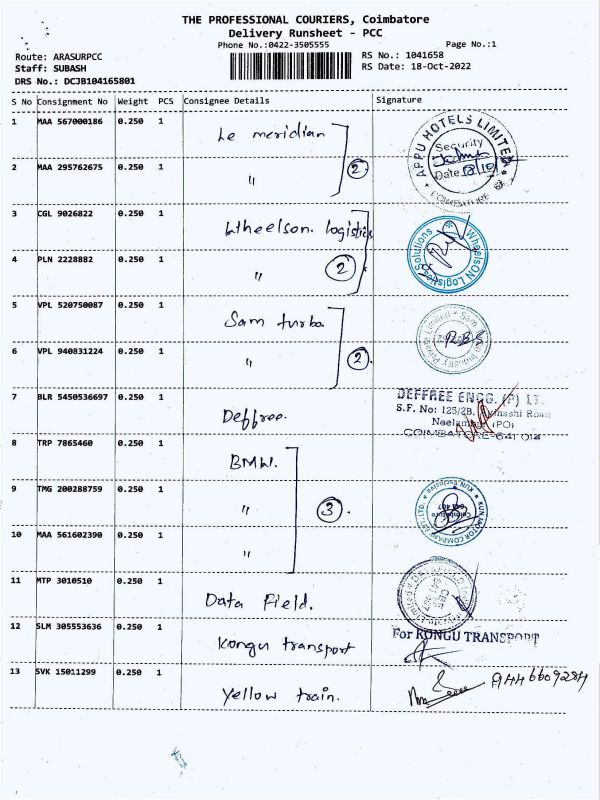 THE PROFESSIONAL COURIERS, Coimbatore
Delivery Runsheet - PCC
Phone No.:0422-3505555 Page No.:1
Route: ARASURPCC RS No.: 1041658
Staff: SUBASH RS Date: 18-Oct-2022
DRS No.: DCJB104165801
S No Consignment No Weight PCS Consignee Details Signature
1 MAA 567000186 0.250 1 Le meridian
APPU HOTELS LIMITED
Security
Date 18/10
COIMBATORE
2 MAA 295762675 0.250 1 " 2
3 CGL 9026822 0.250 1 Wheelson. logistics
WheelSON Logistics Solutions
4 PLN 2228882 0.250 1 " 2
5 VPL 520750087 0.250 1 Sam turbo
6 VPL 940831224 0.250 1 " 2
7 BLR 5450536697 0.250 1 Deffree.
DEFFREE ENGG. (P) LT.
S.F. No: 125/2B, Avinashi Road
Neelambur (PO)
COIMBATORE-641 014
8 TRP 7865460 0.250 1 BMW.
9 TMG 200288759 0.250 1 " 3
KUN MOTOR COMPANY PVT. LTD.
KUN Exclusive
Coimbatore
641 407
10 MAA 561602390 0.250 1 "
11 MTP 3010510 0.250 1 Data Field.
12 SLM 305553636 0.250 1 Kongu transport
For KONGU TRANSPORT
13 SVK 15011299 0.250 1 Yellow train.